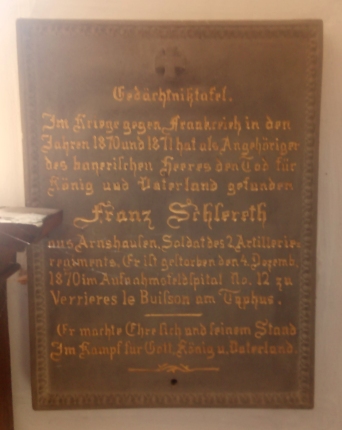 Gedächtnißtafel.
Im Kriege gegen Frankreich in den
Jahren 1870 und 1871 hat als Angehöriger
des bayerischen Heeres den Tod für
König und Vaterland gefunden
Franz Schlereth
aus Arnshausen, Soldat des 2 Artillerie-
regiments. Er ist gestorben den 4. Dezemb.
1870 im Aufnahmsfeldspital No. 12 zu
Verrieres le Buisson am Typhus.
Er machte Ehre sich und seinem Stand
Im Kampf für Gott, König u. Vaterland.